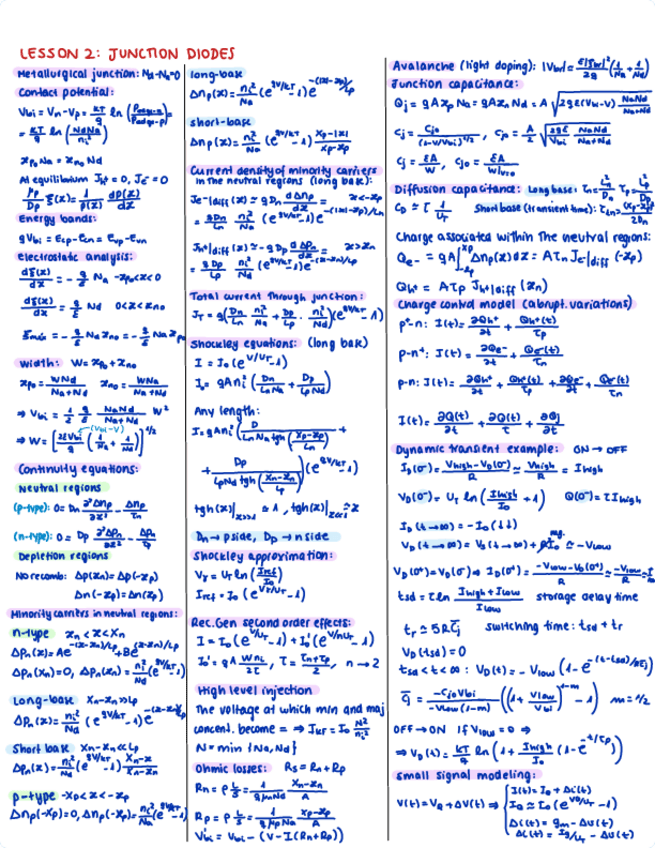 LESSON 2: JUNCTION DIODES
Metallurgical junction: Nd-Na=0
Contact potential:
Vbi = Vn-Vp = kT/q ln (
= kT/q ln (NdNa/ni²)
xp0 Na = xn0 Nd
At equilibrium Jh^t = 0, Je^- = 0
μp/Dp ξ(x) = 1/p(x) dp(x)/dx
Energy bands:
qVbi = Ecp-Ecn = Evp-Evn
electrostatic analysis:
dξ(x)/dx = - q/ε Na -xp0<x<0
dξ(x)/dx = q/ε Nd 0<x<xn0
ξmax = - q/ε Nd xn0 = - q/ε Na xp0
Width: W = xp0 + xn0
xp0 = WNd/(Na+Nd) xn0 = WNa/(Na+Nd)
⇒ Vbi = 1/2 q/ε NaNd/(Na+Nd) W²
(Vbi-V)
⇒ W = [2εVbi/q (1/Na + 1/Nd)]^1/2
Continuity equations:
Neutral regions
(p-type): 0 = Dn ∂²Δnp/∂x² - Δnp/τn
(n-type): 0 = Dp ∂²Δpn/∂x² - Δpn/τp
Depletion regions
No recomb: Δp(xn) = Δp(-xp)
Δn(-xp) = Δn(xp)
Minority carriers in neutral regions:
n-type xn<x<Xn
Δpn(x) = Ae^-(x-xn)/Lp + Be^(x-xn)/Lp
Δpn(Xn) = 0, Δpn(xn) = ni²/Nd (e^qV/kT - 1)
Long-base Xn-xn >> Lp
Δpn(x) = ni²/Nd (e^qV/kT - 1) e^-(x-xn)/Lp
Short base Xn-xn << Lp
Δpn(x) = ni²/Nd (e^qV/kT - 1) (Xn-x)/(Xn-xn)
p-type -Xp<x<-xp
Δnp(-Xp) = 0, Δnp(-xp) = ni²/Na (e^qV/kT - 1)
long-base
Δnp(x) = ni²/Na (e^qV/kT - 1) e
short-base
Δnp(x) = ni²/Na (e^qV/kT - 1) (Xp-|x|)/(Xp-xp)
Current density of minority carriers
in the neutral regions (long base):
Je-|diff (x) = q Dn dΔnp/dx = x<-xp
= qDn/Ln ni²/Na (e^qV/kT - 1) e^-(|x|-xp)/Ln
Jh+|diff (x) = -q Dp dΔpn/dx = x>xn
= qDp/Lp ni²/Nd (e^qV/kT - 1) e^-(x-xn)/Lp
Total current through junction:
JT = q(Dn/Ln · ni²/Na + Dp/Lp · ni²/Nd)(e^qV/kT - 1)
Shockley equations: (long base)
I = I0 (e^V/UT - 1)
I0 = qAni² (Dn/LnNa + Dp/LpNd)
Any length:
I = qAni² (D/(LnNa tgh((Xp-xp)/Ln)) +
+ Dp/(LpNd tgh((Xn-xn)/Lp))) (e^qV/kT - 1)
tgh(x)|x>>1 ≈ 1, tgh(x)|x<<1 ≈ x
Dn → p side, Dp → n side
Shockley approximation:
Vγ = UT ln (Iref/I0)
Iref = I0 (e^Vγ/UT - 1)
Rec.Gen second order effects:
I = I0 (e^V/UT - 1) + I0' (e^V/nUT - 1)
I0' = qA Wni/2τ, τ = (τn+τp)/2, n → 2
High level injection
The voltage at which min and maj
concent. become = ⇒ IKF = I0 N²/ni²
N = min {Na, Nd}
Ohmic losses: Rs = Rn + Rp
Rn = ρ L/S = 1/(qμnNd) (Xn-xn)/A
Rp = ρ L/S = 1/(qμpNa) (Xp-xp)/A
Vbi' = Vbi - (V - I(Rn+Rp))
Avalanche (light doping): |Vbr| = (1/Na + 1/Nd)
Junction capacitance:
Qj = qAxpNa = qAxnNd = A √(2qε(Vbi-V) NaNd/(Na+Nd))
Cj = Cj0/(1-V/Vbi)^1/2, Cj0 = A/2 √(2qε/Vbi NaNd/(Na+Nd))
Cj = εA/W, Cj0 = εA/W|V=0
Diffusion capacitance: Long base: τn = Ln²/Dn τp = Lp²/Dp
CD ≈ τ I/UT Short base (transient time): τtn = (Xp-xp)²/2Dn
Charge associated within the neutral regions:
Qe- = qA ∫ Δnp(x)dx = Aτn Je-|diff (-xp)
Qh+ = Aτp Jh+|diff (xn)
Charge control model (abrupt. variations)
p+-n: I(t) = ∂Qh+/∂t + Qh+(t)/τp
p-n+: I(t) = ∂Qe-/∂t + Qe-(t)/τn
p-n: I(t) = ∂Qh+/∂t + Qh+(t)/τp + ∂Qe-/∂t + Qe-(t)/τn
I(t) = ∂Q(t)/∂t + ∂Q(t)/τ + ∂Qj/∂t
Dynamic transient example: ON → OFF
ID(0-) = (Vhigh - VD(0-))/R ≈ Vhigh/R = Ihigh
VD(0-) = UT ln (Ihigh/I0 + 1) Q(0-) = τIhigh
ID(t→∞) = -I0 (↓↓)
VD(t→∞) = VS(t→∞) + RI0 ≈ -Vlow
neg.
VD(0+) = VD(0-) ⇒ ID(0+) = (-Vlow - VD(0+))/R ≈ -Vlow/R = -I
tsd = τ ln (Ihigh + Ilow)/Ilow storage delay time
tr ≈ 5RC̄j switching time: tsd + tr
VD(tsd) = 0
tsd < t < ∞: VD(t) = -Vlow (1 - e^-(t-tsd)/RC̄j)
C̄j = -Cj0Vbi/(-Vlow(1-m)) ((1 + Vlow/Vbi)^1-m - 1) m = 1/2
OFF → ON if Vlow = 0 ⇒
⇒ VD(t) = kT/q ln (1 + Ihigh/I0 (1 - e^-t/τp))
Small signal modeling:
V(t) = VQ + ΔV(t) ⇒
I(t) = IQ + Δi(t)
IQ ≈ I0 (e^VQ/UT - 1)
Δi(t) = gm · ΔV(t)
Δi(t) = IQ/UT · ΔV(t)